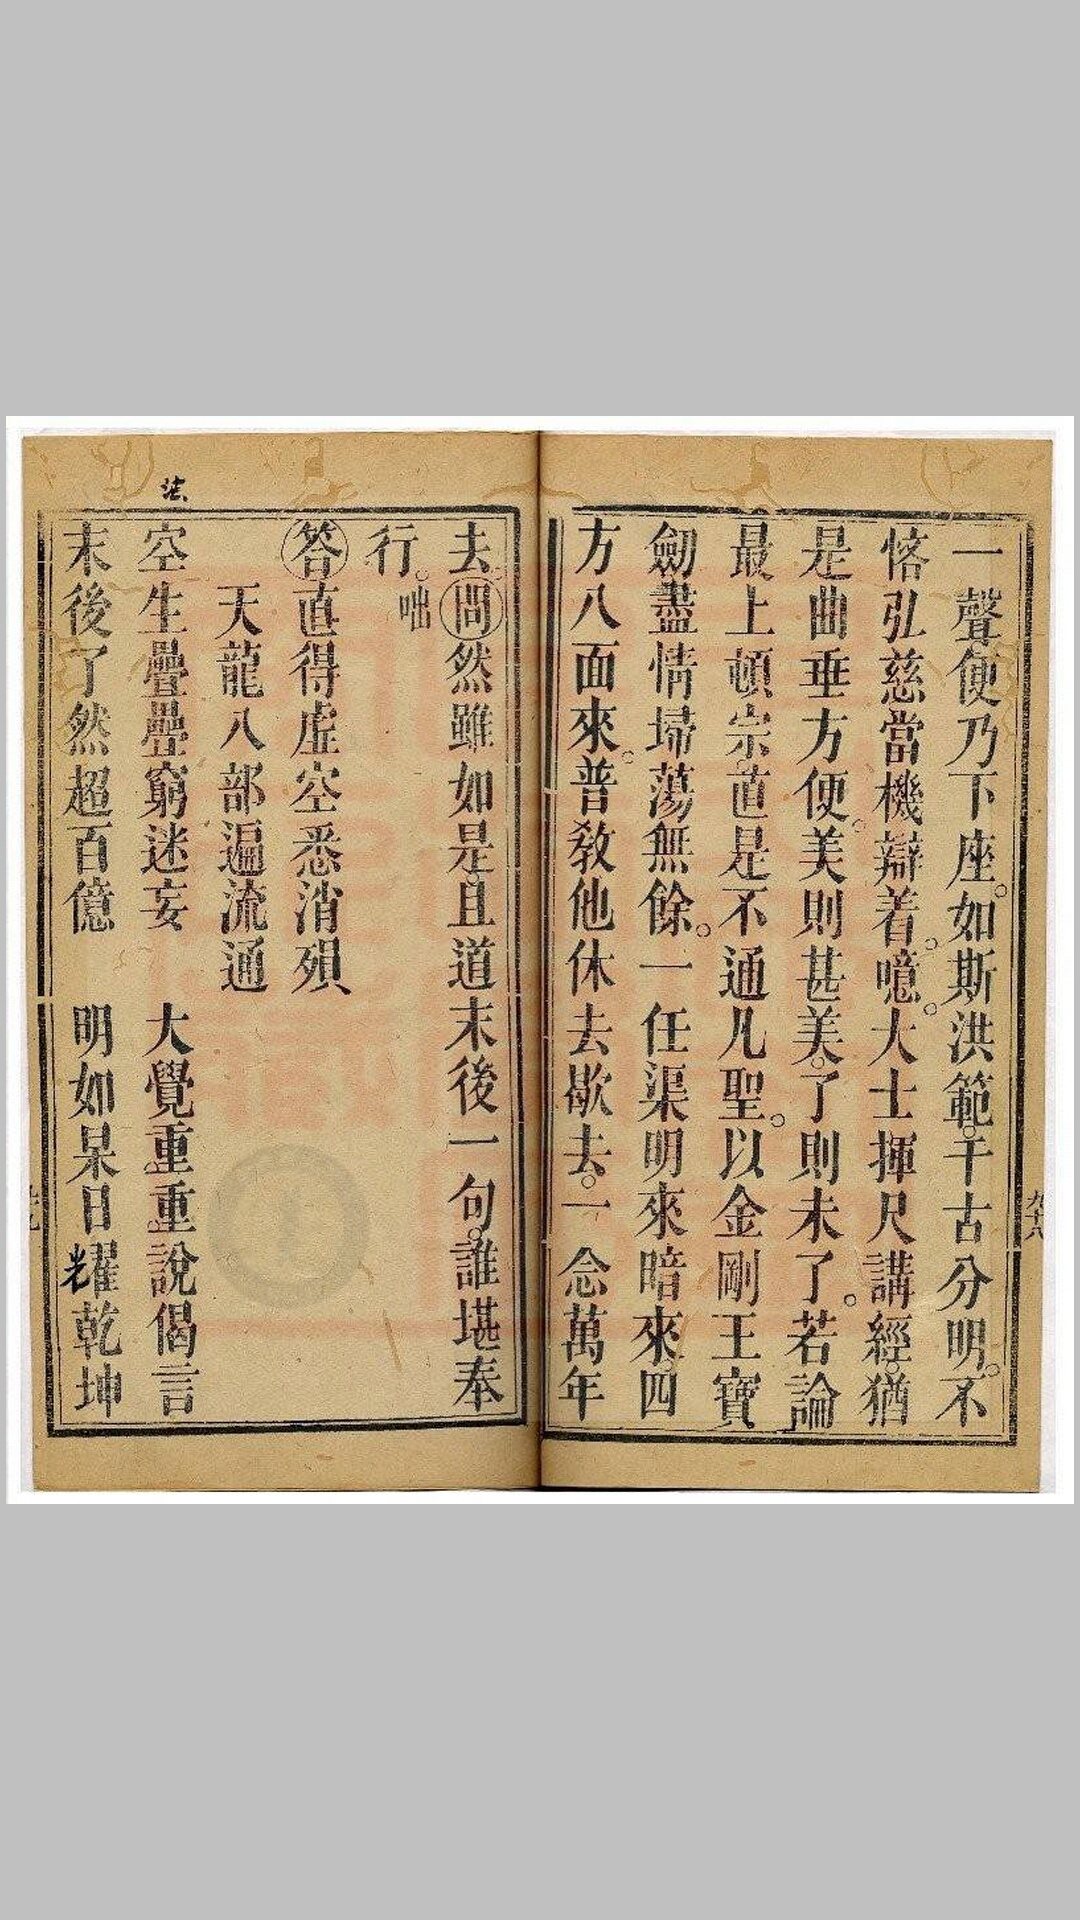 一聲便乃下座。如斯洪範。千古分明。不
悋弘慈當機辯着。噫。大士揮尺講經。猶
是曲垂方便。美則甚美。了則未了。若論
最上頓宗。直是不通凡聖。以金剛王寶
劒盡情埽蕩無餘。一任渠明來暗來。四
方八面來。普教他休去歇去。一念萬年
九十八
去。問然雖如是。且道末後一句。誰堪奉
行。咄
答直得虛空悉消殞
天龍八部遍流通
空生疊疊窮迷妄 大覺重重說偈言
末後了然超百億 明如杲日耀乾坤